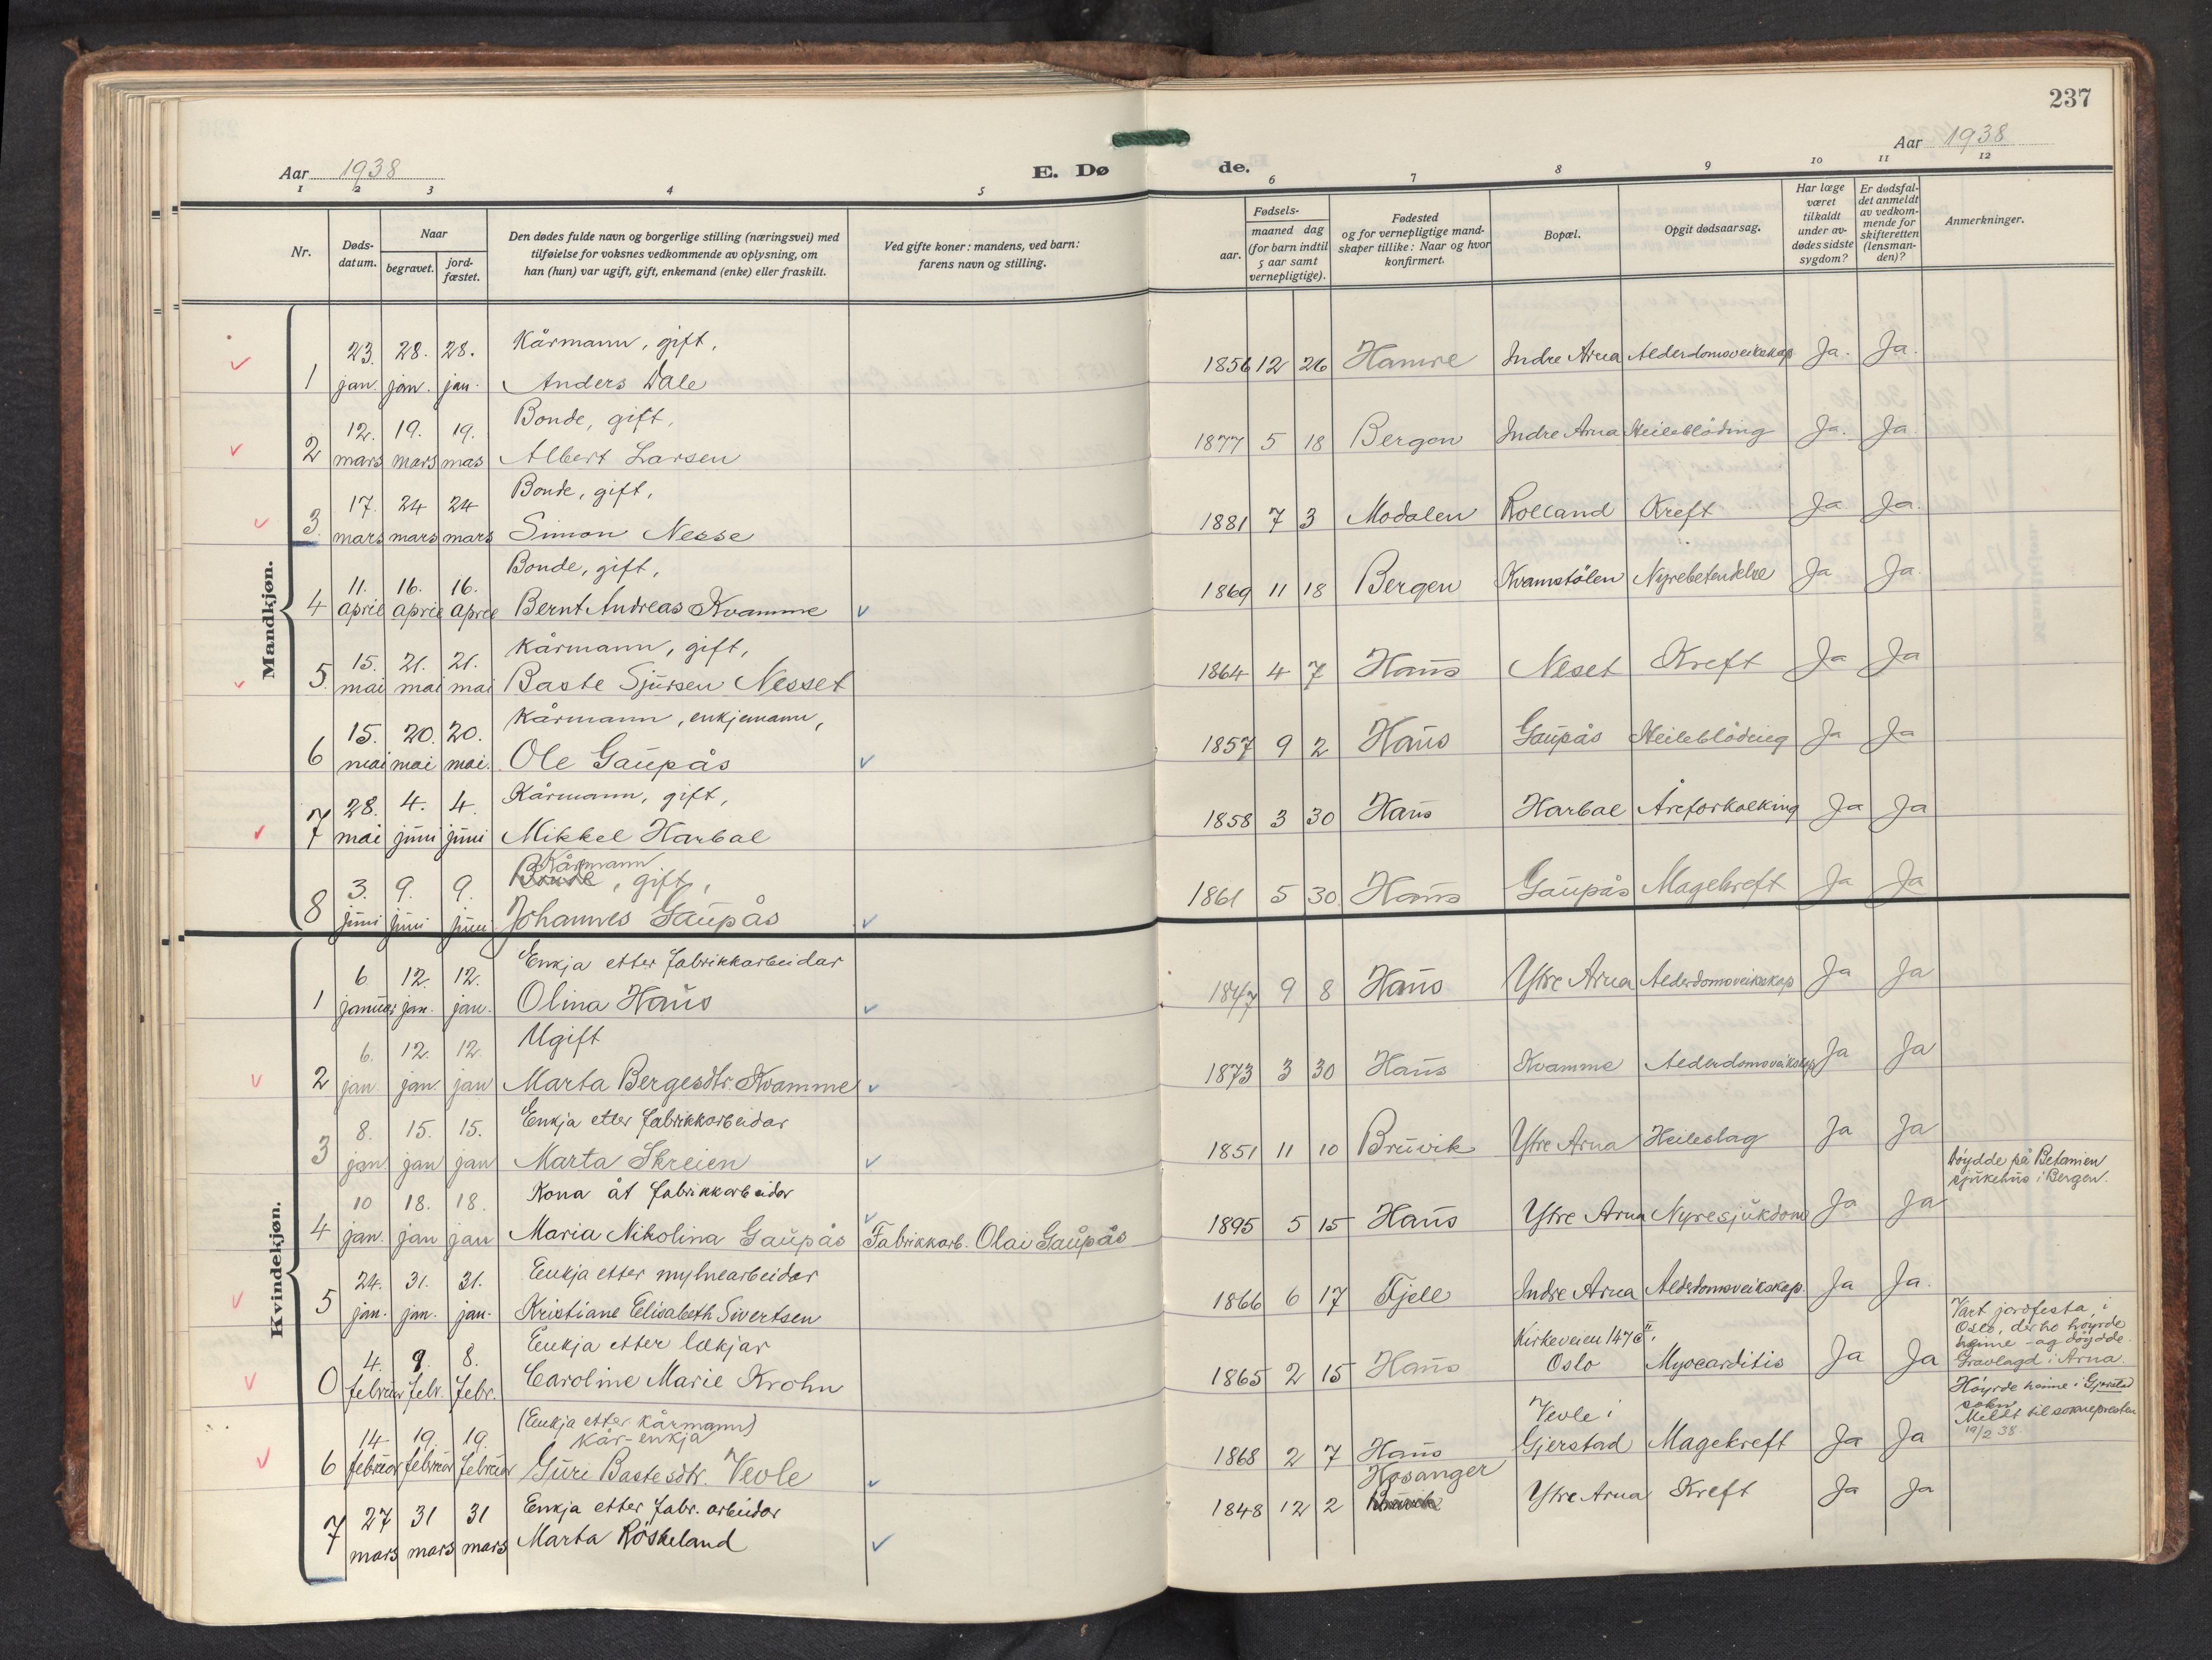 237
Aar 1938
E. Dø
de.
Aar 1938
1 2 3 4 5 6 7 8 9 10 11 12
Nr.
Døds-
datum.
Naar
begravet.
jord-
fæstet.
Den dødes fulde navn og borgerlige stilling (næringsvei) med
tilføielse for voksnes vedkommende av oplysning, om
han (hun) var ugift, gift, enkemand (enke) eller fraskilt.
Ved gifte koner: mandens, ved barn:
farens navn og stilling.
Fødsels-
aar.
maaned dag
(for barn indtil
5 aar samt
vernepligtige).
Fødested
og for vernepligtige mand-
skaper tillike: Naar og hvor
konfirmert.
Bopæl.
Opgit dødsaarsag.
Har læge
været
tilkaldt
under av-
dødes sidste
sygdom?
Er dødsfal-
det anmeldt
av vedkom-
mende for
skifteretten
(lensman-
den)?
Anmerkninger.
Mandkjøn.
23. 28. 28. Kårmann, gift,
1 jan. jan. jan. Anders Dale 1856 12 26 Hamre Indre Arna Alderdomsveikskap Ja. Ja.
12. 19. 19. Bonde, gift,
2 mars mars mas Albert Larsen 1877 5 18 Bergen Indre Arna Heileblöding Ja. Ja
17. 24 24 Bonde, gift,
3 mars mars mars Simon Nesse 1881 7 3 Modalen Rolland Kreft Ja Ja.
11. 16. 16. Bonde, gift,
4 april april april Bernt Andreas Kvamme 1869 11 18 Bergen Kvamstölen Nyrebetendelse Ja Ja.
15. 21. 21. Kårmann, gift,
5. mai mai mai Baste Sjursen Nesset 1864 4 7 Haus Neset Kreft Ja Ja
15. 20. 20. Kårmann, enkjemann,
6 mai mai mai. Ole Gaupås 1857 9 2 Haus Gaupås Heileblöding Ja Ja
28. 4. 4. Kårmann, gift,
7 mai juni juni Mikkel Harbal 1858 3 30 Haus Harbal Åreforkalking Ja Ja
Kårmann
3. 9. 9. Bonde, gift,
8 juni juni juni Johannes Gaupås 1861 5 30 Haus Gaupås Magekreft Ja Ja
Kvindekjøn.
6 12. 12. Enkja etter fabrikkarbeidar
1 januar jan. jan. Olina Haus 1847 9 8 Haus Ytre Arna Alderdomsveikskap Ja Ja
6. 12. 12. Ugift
2 jan. jan. jan Marta Bergesdtr. Kvamme 1873 3 30 Haus Kvamme Alderdomsveikskap Ja Ja
8. 15. 15. Enkja etter fabrikkarbeidar
3 jan jan jan Marta Skreien 1851 11 10 Bruvik Ytre Arna Heileslag Ja Ja
Döydde på Betanien
sjukehus i Bergen.
10 18. 18. Kona åt fabrikkarbeidar
4 jan. jan jan Maria Nikolina Gaupås Fabrikkarb. Olai Gaupås 1895 5 15 Haus Ytre Arna Nyresjukdom Ja Ja
24. 31. 31. Enkja etter mylnearbeidar
5 jan. jan. jan. Kristiane Elisabeth Sivertsen 1866 6 17 Fjell Indre Arna Alderdomsveikskap. Ja Ja.
Vart jordfesta i
Oslo, der ho höyrde
heime – og döydde.
Gravlagd i Arna.
4. 9. 8. Enkja etter lækjar
0 februar febr. febr. Caroline Marie Krohn 1865 2 15 Haus Kirkeveien 147 II,
Oslo Myocarditis Ja Ja
Höyrde heime i Gjerstad
sokn.
Meldt til soknepresten
19/2 38.
(Enkja etter kårmann)
14 19. 19. Kår-enkja
6 februar februar februar Guri Bastesdtr. Veole 1868 2 7 Haus Veole i
Gjerstad Magekreft Ja Ja
27 31 31 Enkja etter fabr. arbeidar
7 mars mars mars Marta Röskeland 1848 12 2 Hosanger Bruvik Ytre Arna Kreft Ja Ja